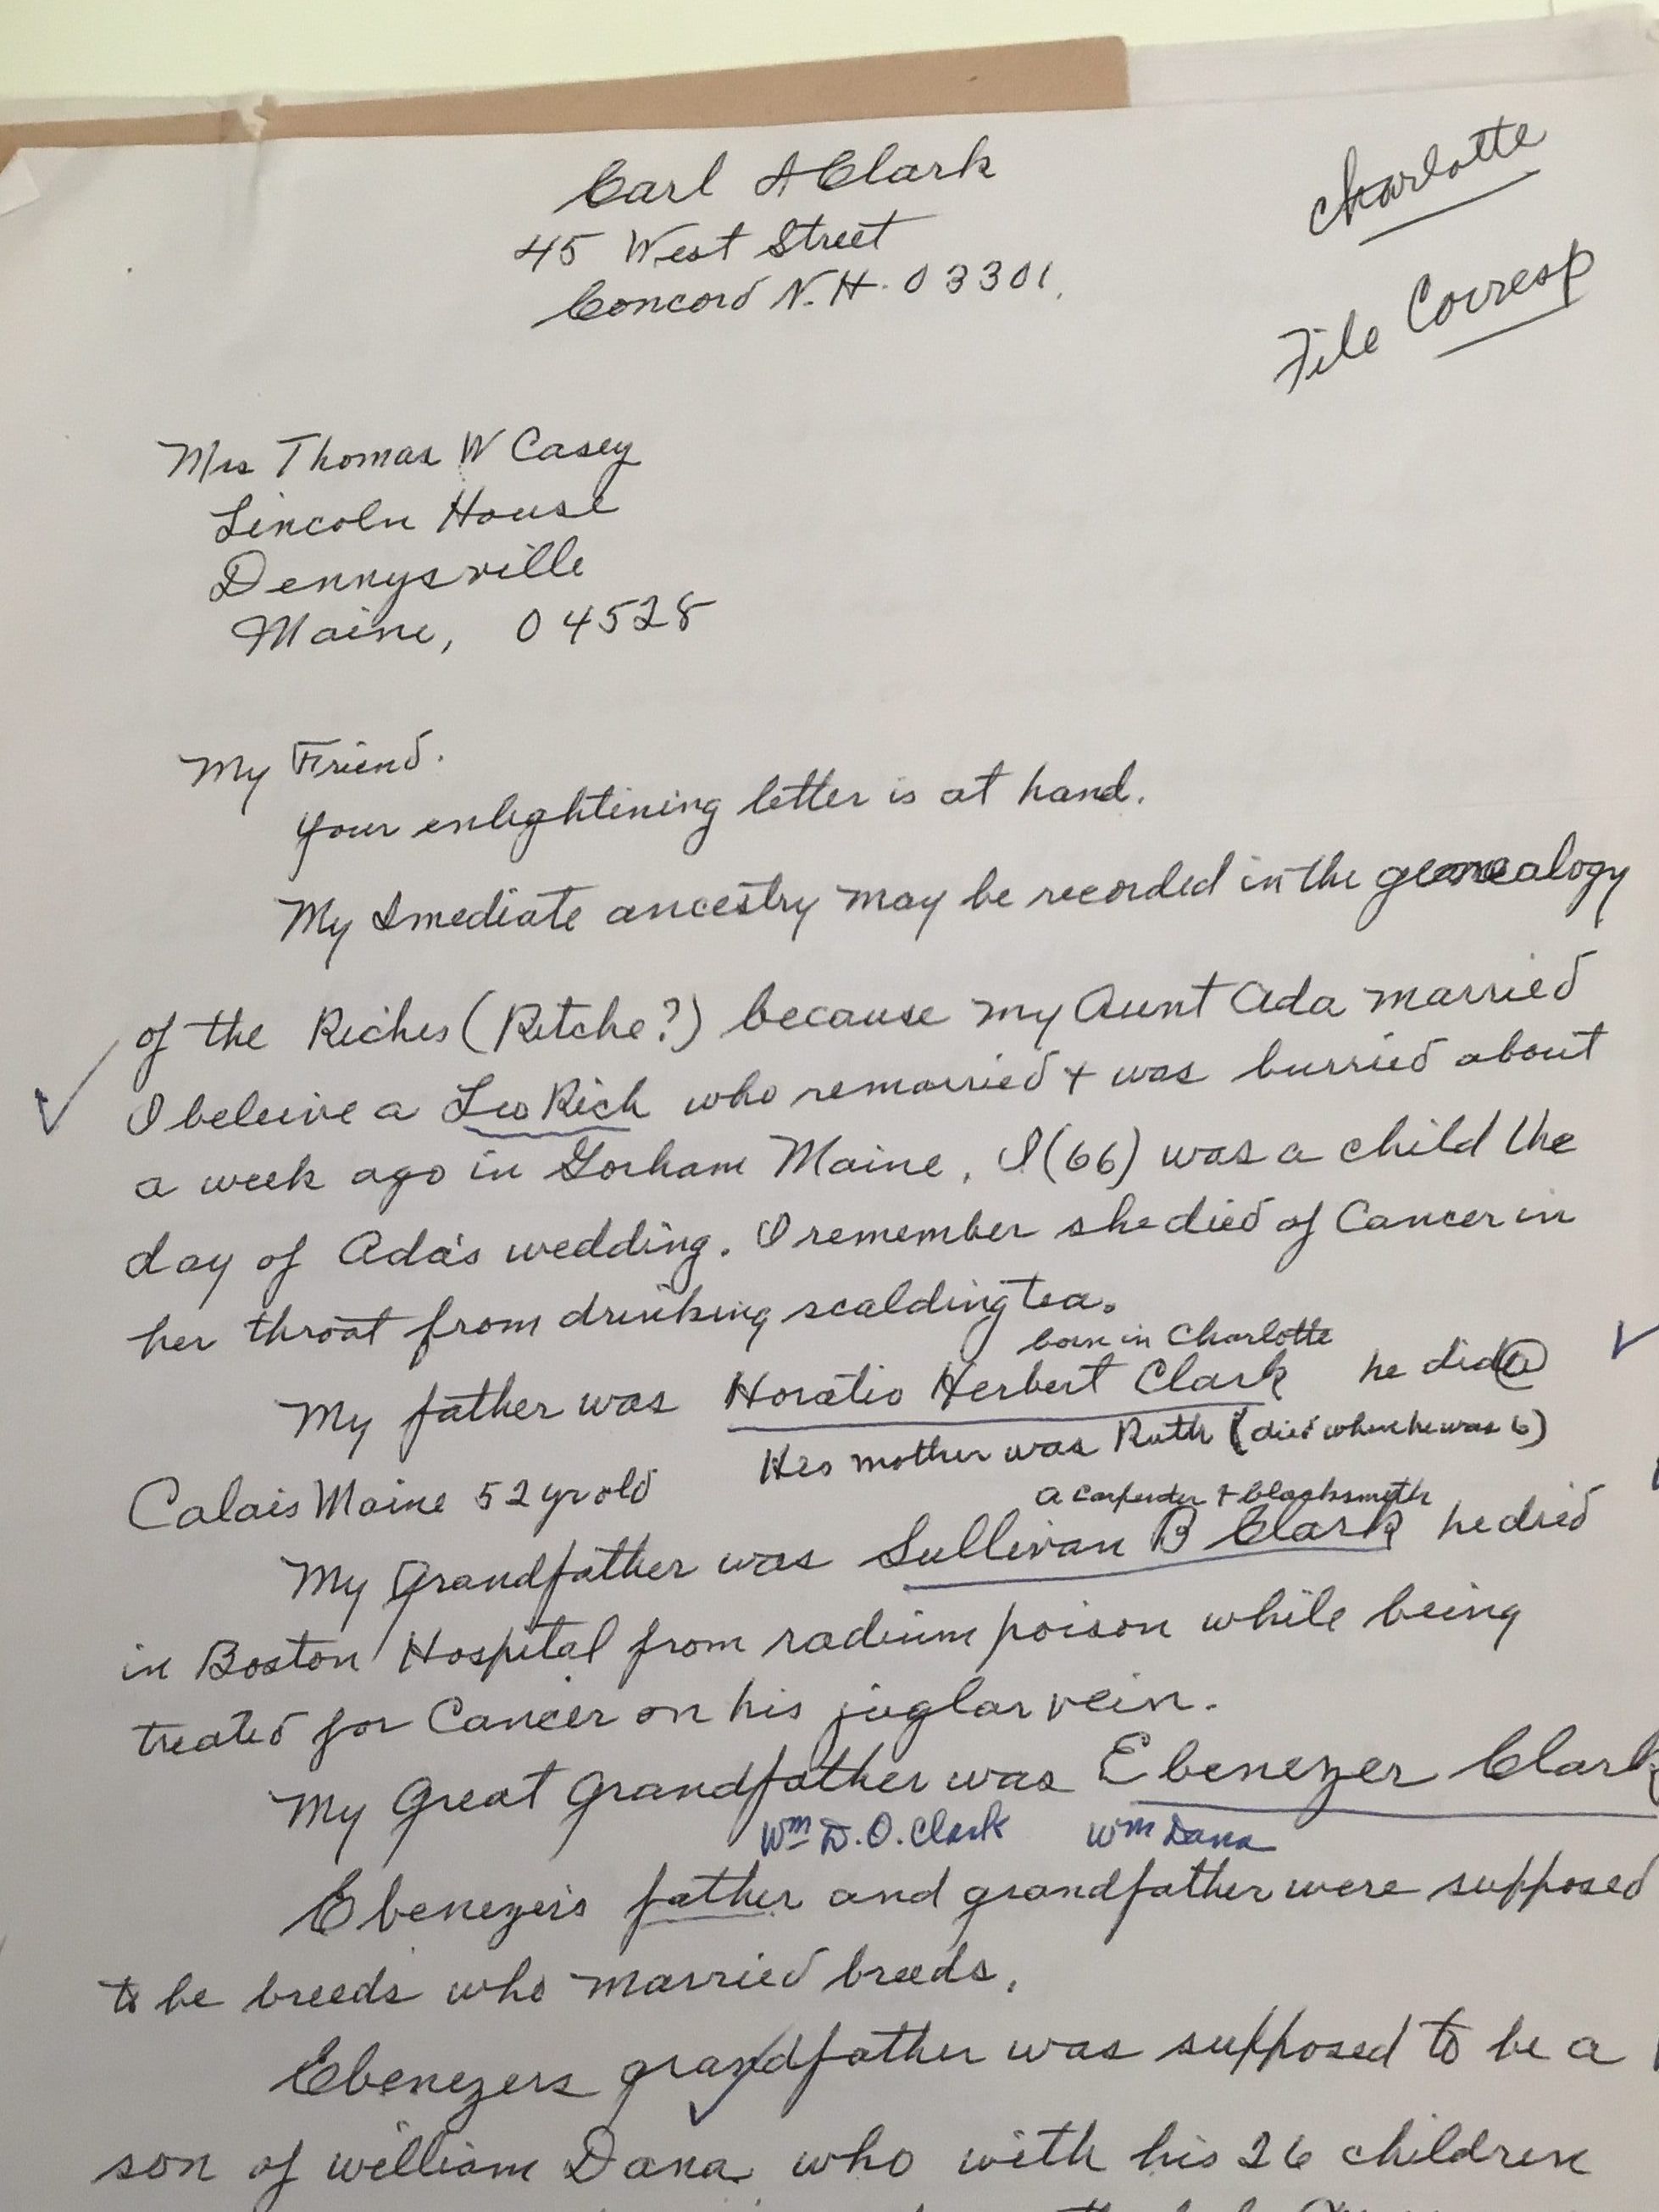 Carl A Clark
45 West Street
Concord N.H. 03301.
Charlotte
File Corresp
Mrs Thomas W Casey
Lincoln House
Dennysville
Maine, 04528
My Friend.
Your enlightining letter is at hand.
My Imediate ancestry may be recorded in the genealogy
of the Riches (Ritche?) because my Aunt Ada married
I beleive a Leo Rich who remarried + was burried about
a week ago in Gorham Maine. I (66) was a child the
day of Ada's wedding. I remember she died of Cancer in
her throat from drinking scalding tea.
born in Charlotte
My father was Horatio Herbert Clark he died @
His mother was Ruth (died when he was 6)
Calais Maine 52 yr old
a carpenter + blacksmith
My Grandfather was Sullivan B Clark he died
in Boston Hospital from radium poison while being
treated for Cancer on his juglar vein.
My Great Grandfather was Ebenezer Clark
Wm D. O. Clark Wm Dana
Ebenezers father and grandfather were supposed
to be breeds who married breeds.
Ebenezers grandfather was supposed to be a
son of william Dana who with his 26 children